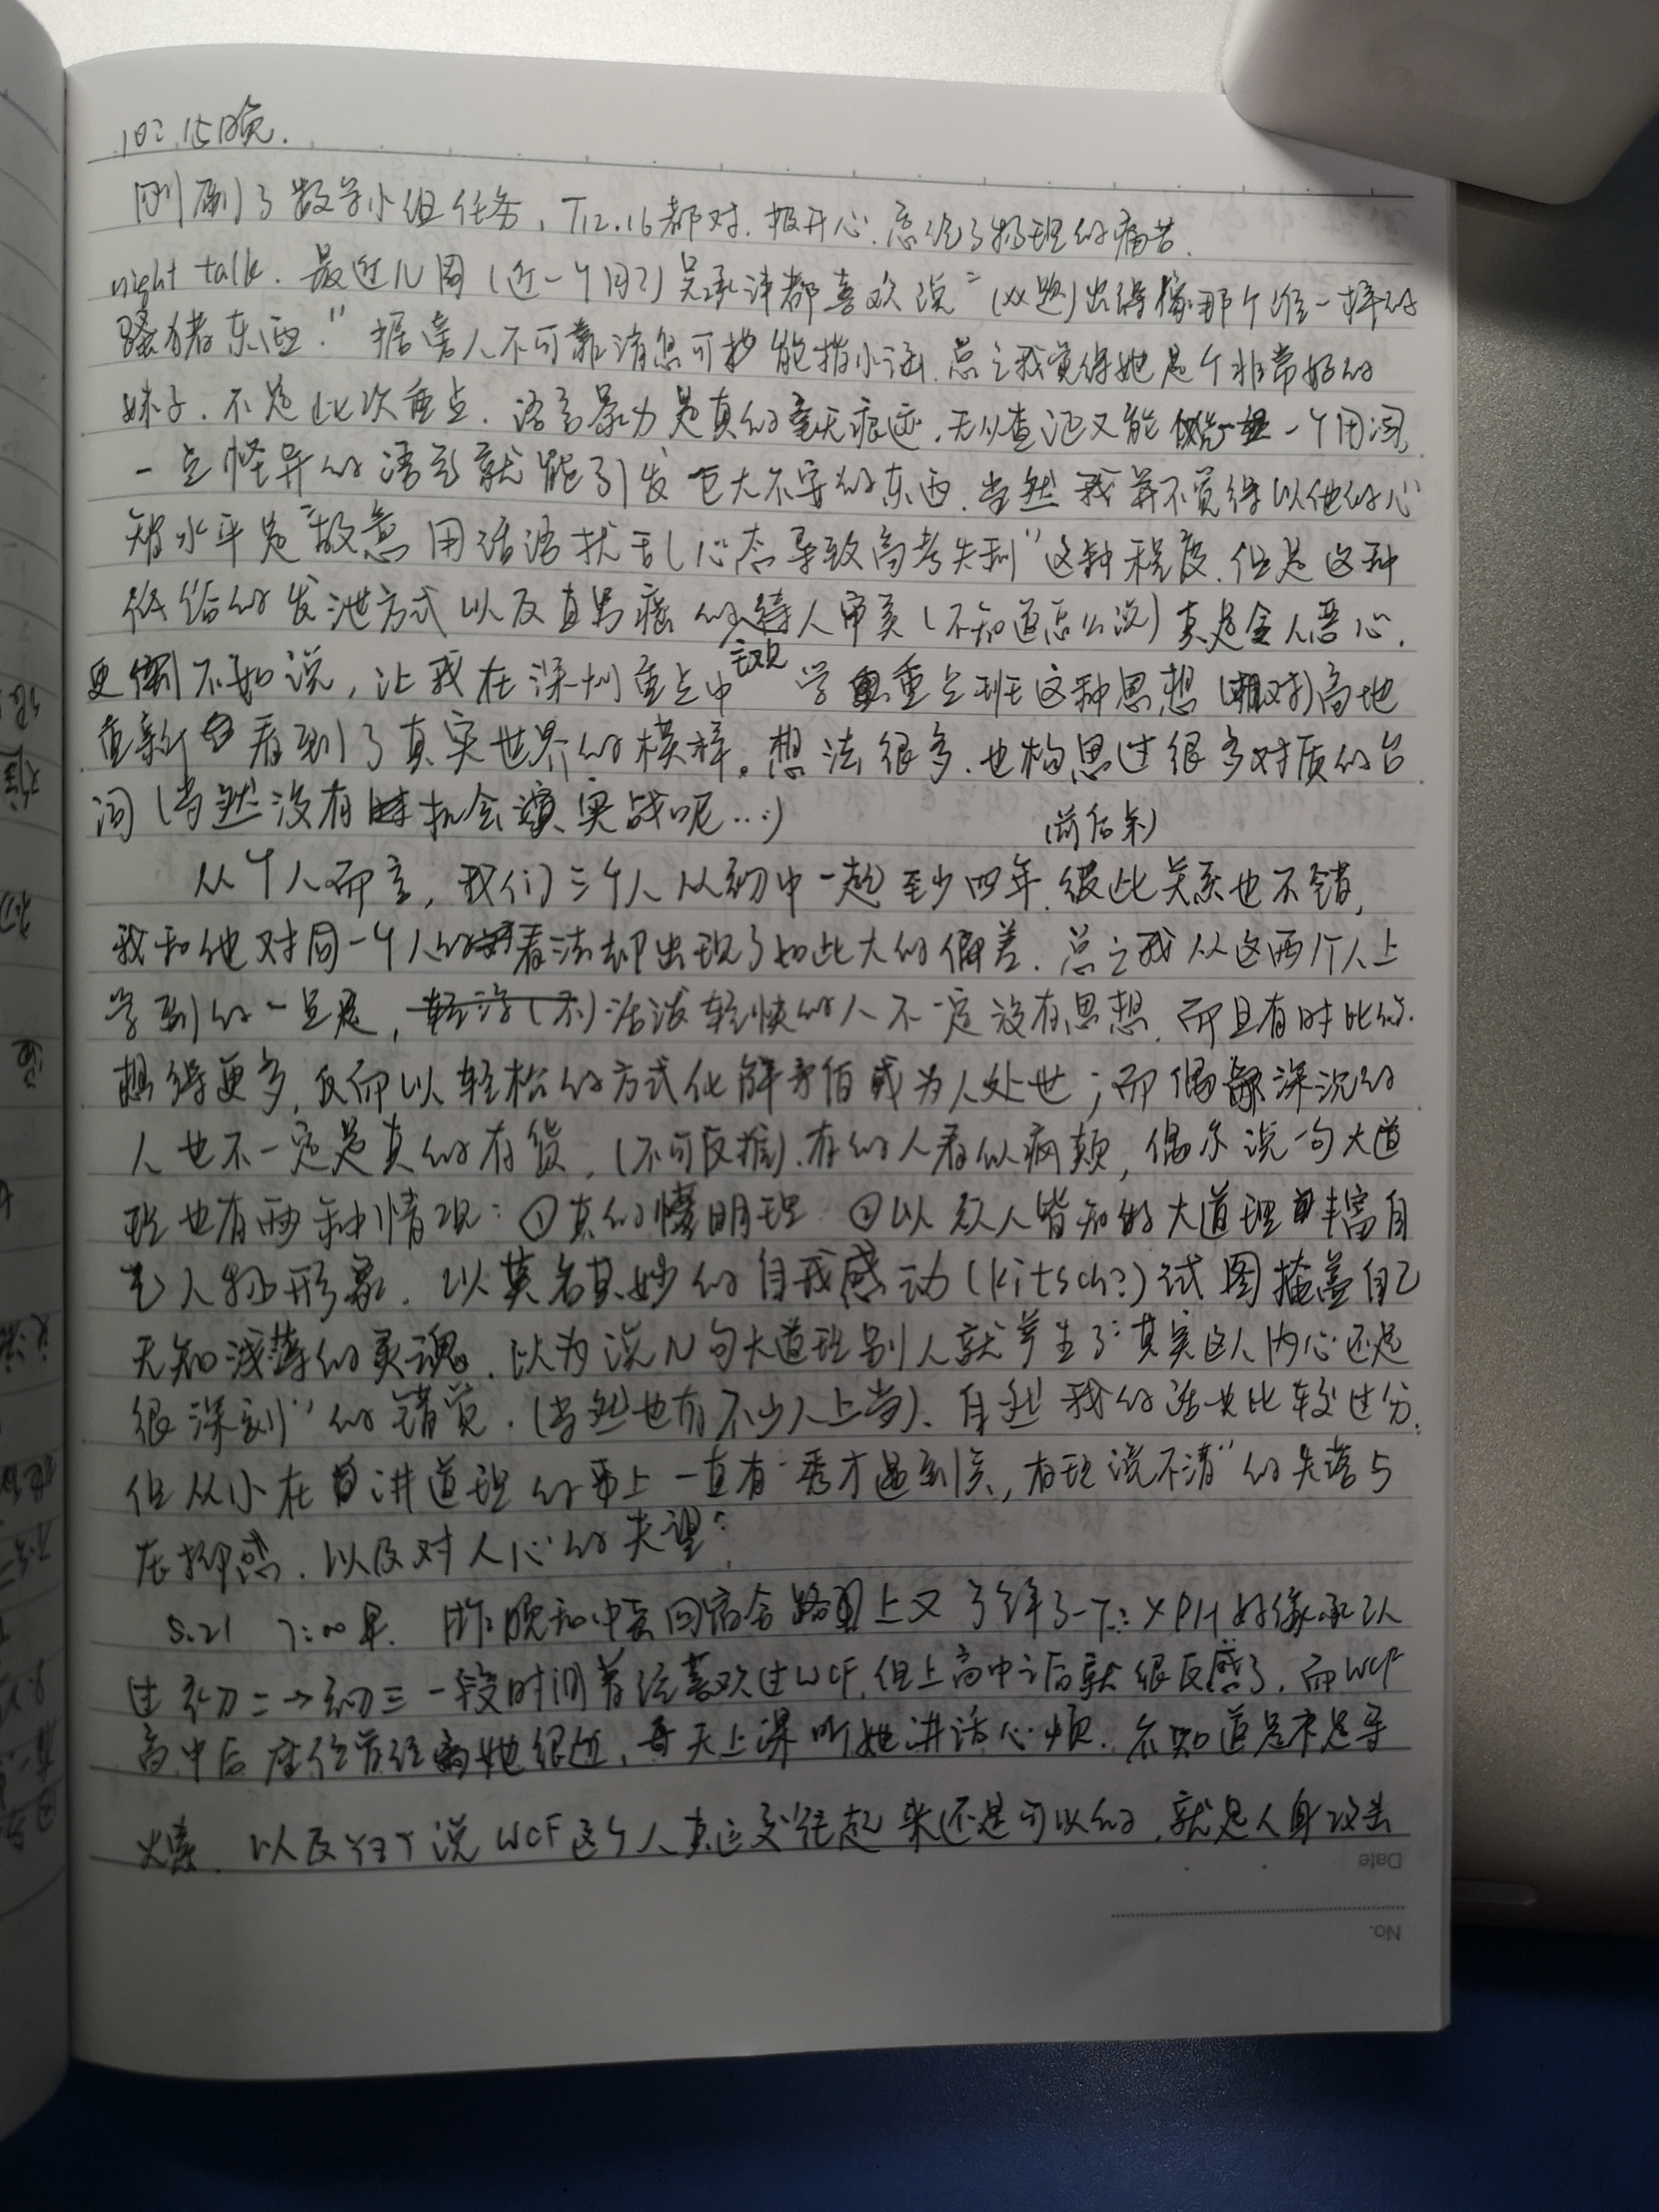 10:15晚.
刚刷了数学小组任务,T12.16都对.报开心.忘给了物理的痛苦.
night talk. 最近几周(近一个月?)都喜欢说"(xx题)出得像那个一样的
骚猪东西."据旁人不可靠消息可能指小涵.总之我觉得她是个非常好的
妹子.不是此次重点.语言暴力是真的毫无痕迹.无从查证又能一个用词
一点怪异的语言就能引发巨大不安的东西.当然我并不觉得以他的心
智水平是"故意用话语扰乱心态导致高考失利"这种程度.但是这种
低俗的发泄方式以及直男癌的待人审美(不知道怎么说)真是令人恶心.
更不如说,让我在深圳重点中学重点班这种思想(相对)高地
重新看到了真实世界的模样。想法很多.也构思过很多对质的台
词(当然没有机会演实战呢...)
(前后桌)
从个人而言,我们三个人从初中一起至少四年.彼此关系也不错,
我和他对同一个人的看法却出现了如此大的偏差.总之我从这两个人上
学到的一点是,活泼轻快的人不一定没有思想.而且有时比你
想得更多,反而以轻松的方式化解矛盾或为人处世;而偶尔深沉的
人也不一定是真的有货.(不可反推).有的人看似疯颠,偶尔说一句大道
理也有两种情况:①真的懂明理 ②以众人皆知的大道理丰富自
己人物形象.以莫名其妙的自我感动(kitsch?)试图掩盖自己
无知浅薄的灵魂.以为说几句大道理别人就产生了"其实这人内心还是
很深刻"的错觉.(当然也有不少人上当).自然我的话也比较过分.
但从小在讲道理的事上一直有"秀才遇到兵,有理说不清"的失落与
压抑感.以及对人心的失望.
5.21 7:00早. 昨晚和回宿舍路上又了解了一下:XPH好像承认
过初二→初三一段时间曾经喜欢过WCF.但上高中之后就很反感了.而WCF
高中后座位曾经离她很近,每天上课听她讲话心烦.不知道是不是导
火索.以及YZY说WCF这个人真正交往起来还是可以的.就是人身攻击
Date
No.